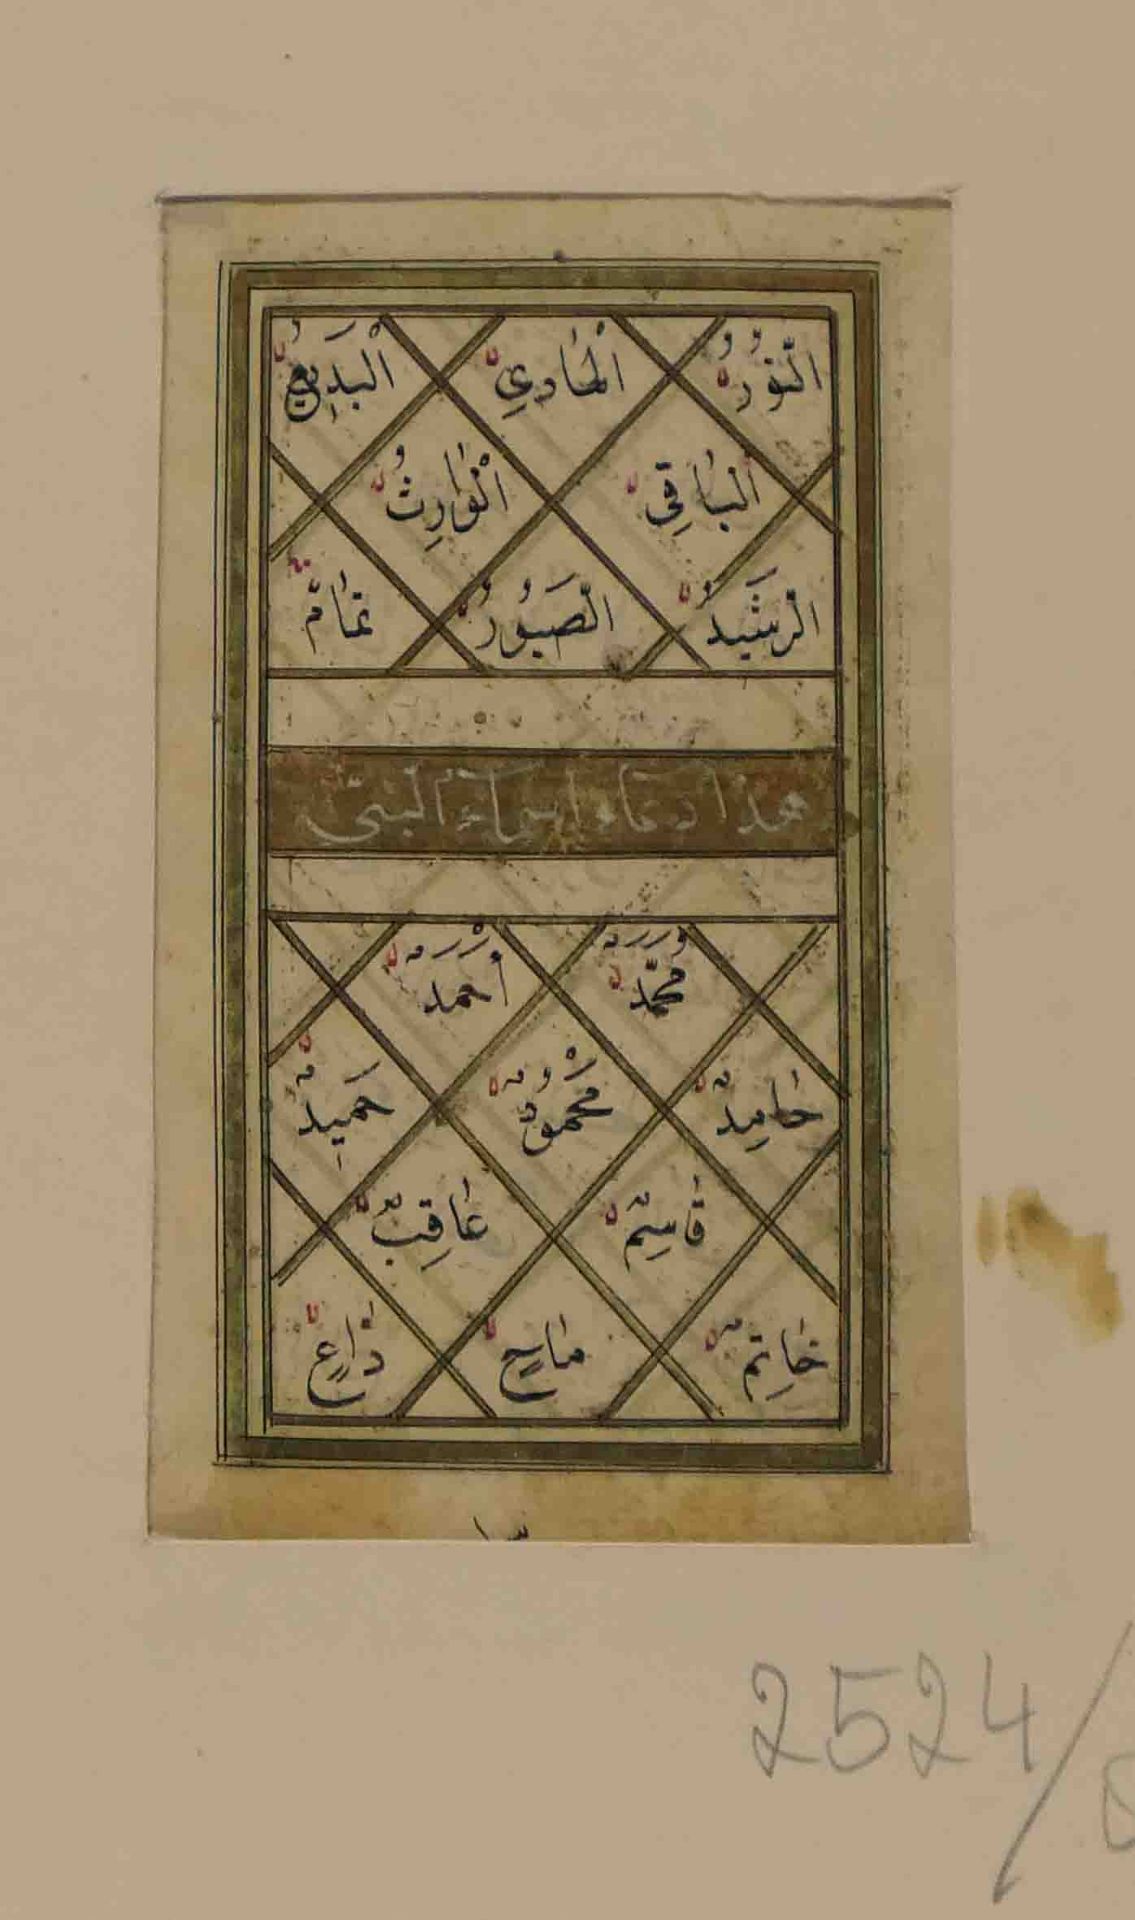 النُّوْرُ الْهَادِي الْبَدِيعُ
الْبَاقِي الْوَارِثُ
الرَّشِيدُ الصَّبُورُ تمام
هذا دعاء اسماء النبي
مُحَمَّدٌ أَحْمَدٌ
حَامِدٌ مَحْمُودٌ حَمِيدٌ
قَاسِمٌ عَاقِبٌ
خَاتِمٌ مَاحٍ
2524/